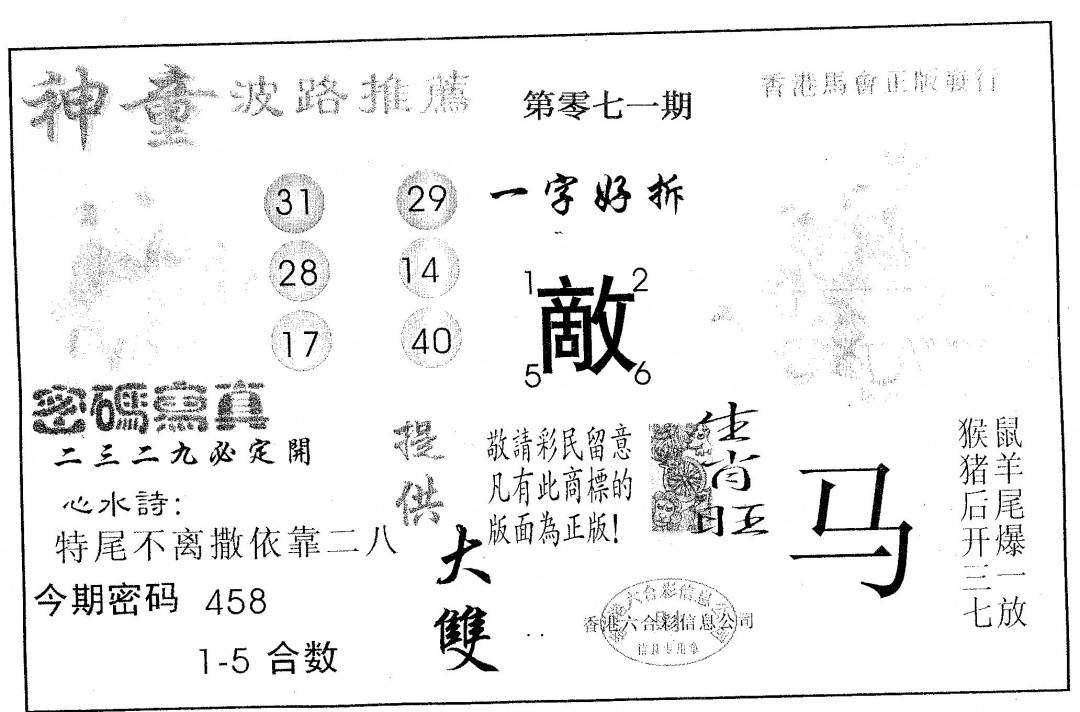 神童波路推薦
第零七一期
香港馬會正版發行
31 29
28 14
17 40
一字好拆
1 2
敵
5 6
密碼寫真
二三二九必定開
心水詩:
特尾不离撒依靠二八
今期密码 458
1-5 合数
提供
大雙
敬請彩民留意
凡有此商標的
版面為正版!
生肖旺
马
鼠羊尾爆一放
猴猪后开三七
香港六合彩信息公司
信息专用章